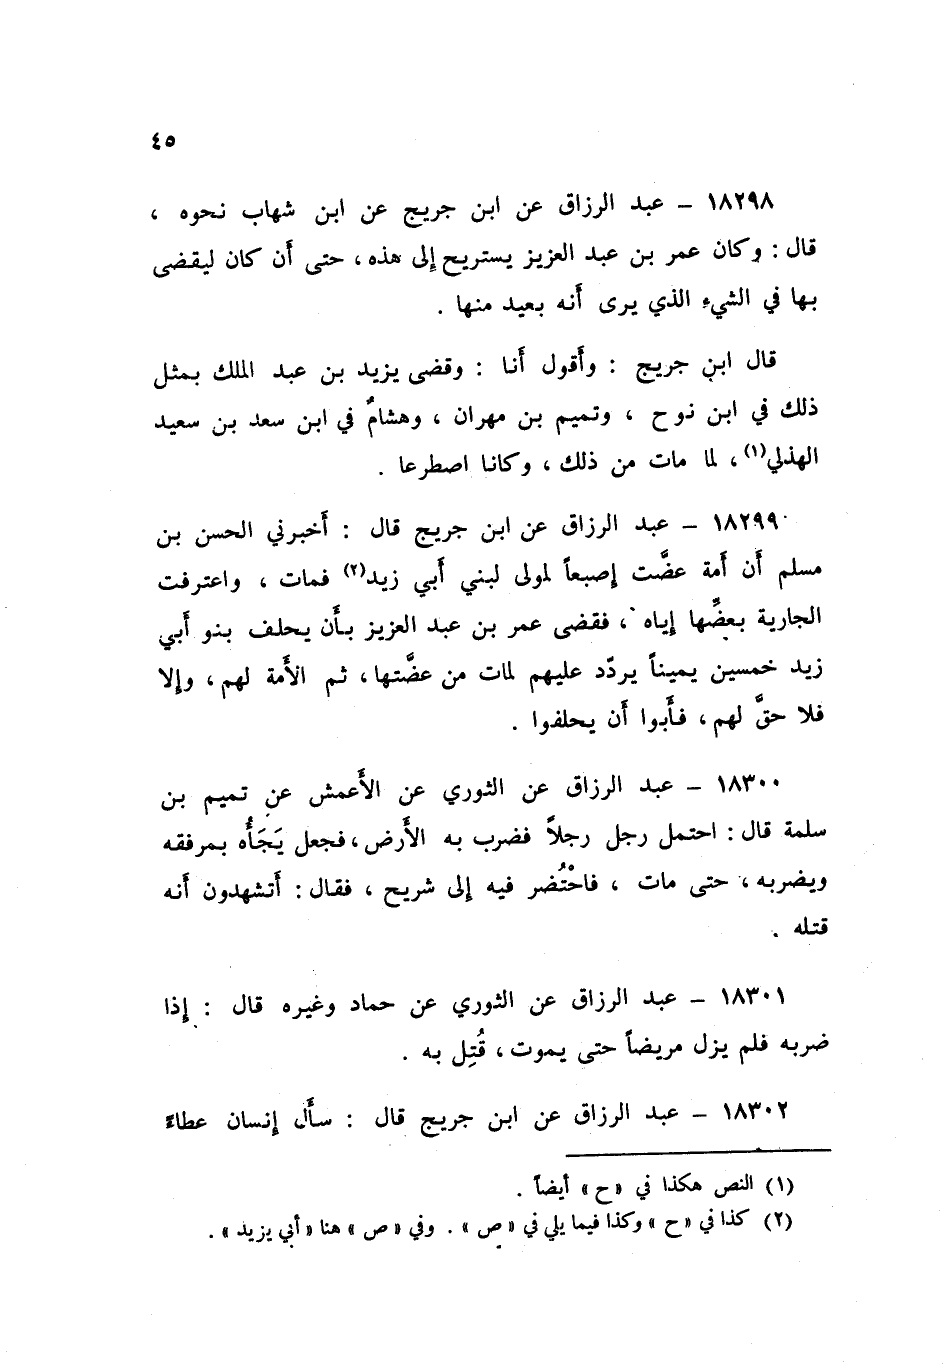 ٤٥
١٨٢٩٨ – عبد الرزاق عن ابن جريج عن ابن شهاب نحوه ،
قال : وكان عمر بن عبد العزيز يستريح إلى هذه ، حتى أن كان ليقضى
بها في الشيء الذي يرى أنه بعيد منها .
قال ابن جريج : وأقول أنا : وقضى يزيد بن عبد الملك بمثل
ذلك في ابن نوح ، وتميم بن مهران ، وهشامٌ في ابن سعد بن سعيد
الهذلي(١) ، لما مات من ذلك ، وكانا اصطرعا .
١٨٢٩٩ – عبد الرزاق عن ابن جريج قال : أخبرني الحسن بن
مسلم أن أمة عضَّت إصبعاً لمولى لبني أبي زيد(٢) فمات ، واعترفت
الجارية بعضِّها إياه ، فقضى عمر بن عبد العزيز بأن يحلف بنو أبي
زيد خمسين يميناً يردّد عليهم لمات من عضَّتها ، ثم الأَمة لهم ، وإلا
فلا حقَّ لهم ، فأَبوا أن يحلفوا .
١٨٣٠٠ – عبد الرزاق عن الثوري عن الأَعمش عن تميم بن
سلمة قال : احتمل رجل رجلاً فضرب به الأَرض ، فجعل يَجَأُه بمرفقه
ويضربه ، حتى مات ، فاحْتُضر فيه إلى شريح ، فقال : أتشهدون أنه
قتله .
١٨٣٠١ – عبد الرزاق عن الثوري عن حماد وغيره قال : إذا
ضربه فلم يزل مريضاً حتى يموت ، قُتِل به .
١٨٣٠٢ – عبد الرزاق عن ابن جريج قال : سأَل إنسان عطاءً
(١) النص هكذا في « ح » أيضاً .
(٢) كذا في « ح » وكذا فيما يلي في « ص » . وفي « ص » هنا « أبي يزيد » .